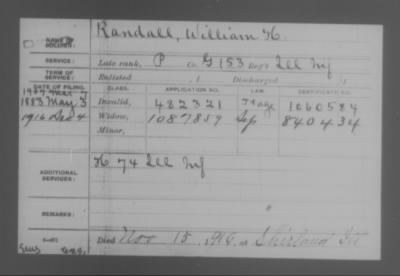 NAME OF SOLDIER: Randall, William H.
SERVICE: Late rank, P Co. G 153 Reg't Ill Inf
TERM OF SERVICE: Enlisted , 1 Discharged , 1
DATE OF FILING. CLASS. APPLICATION NO. LAW. CERTIFICATE NO.
1883 May 3 Invalid, 482321 1060584
1916 Dec 4 Widow, 1087859 Sep 840434
Minor,
ADDITIONAL SERVICES: H 74 Ill Inf
REMARKS:
Died Nov 15, 1916, at Shirland Ill